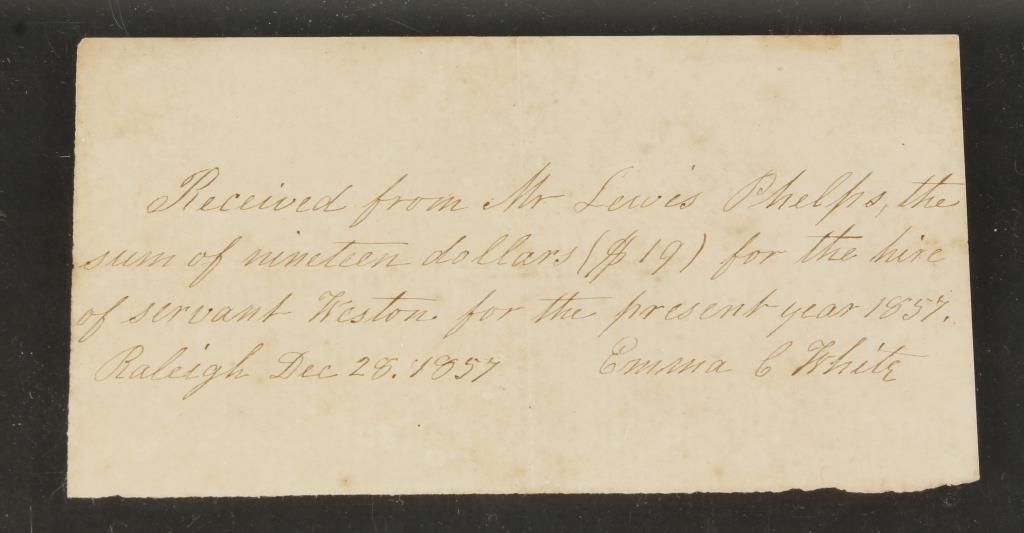 Received from Mr Lewis Phelps, the
sum of nineteen dollars ($19) for the hire
of servant Weston for the present year 1857.
Raleigh Dec 28. 1857 Emma C White